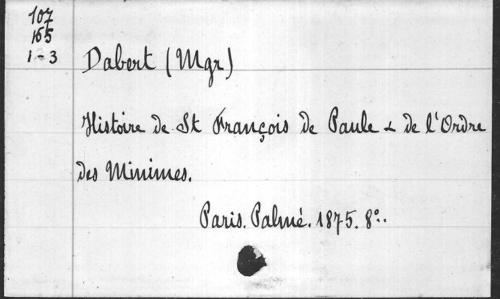 107
165
1-3
Dabert (Mgr)
Histoire de St François de Paule & de l'Ordre
des Minimes.
Paris. Palmé. 1875. 8°.